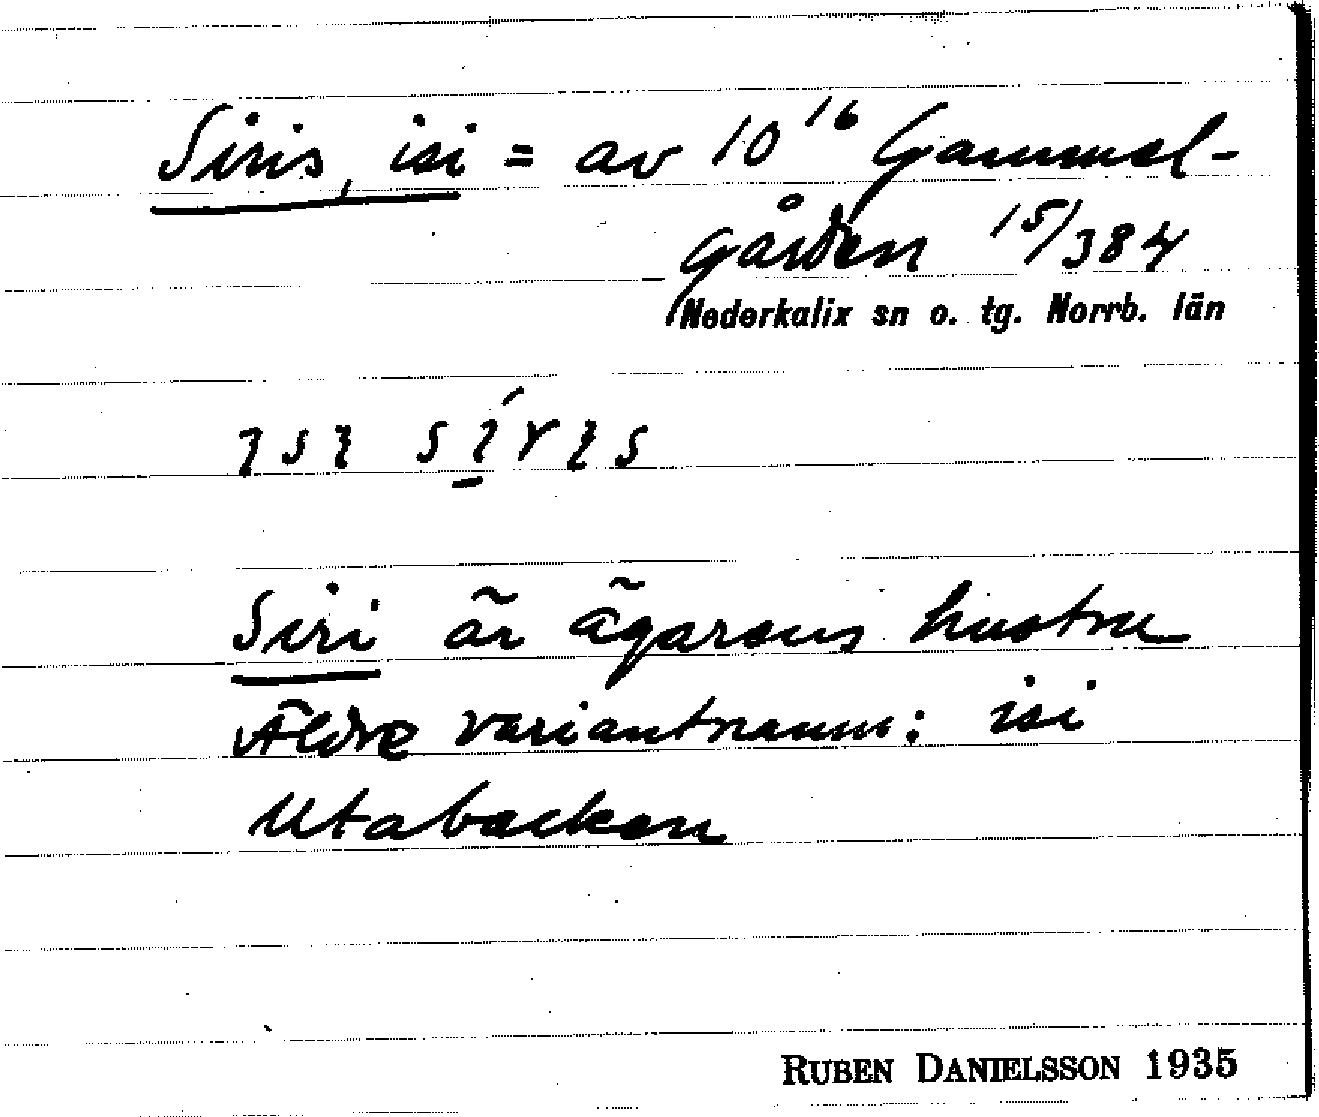 Siris, isi = av 10¹⁶ Gammel-
gården ¹⁵/384
Nederkalix sn o. tg. Norrb. län
Siri är ägarens hustru
Äldre variantnamn: isi
Utabacken
RUBEN DANIELSSON 1935